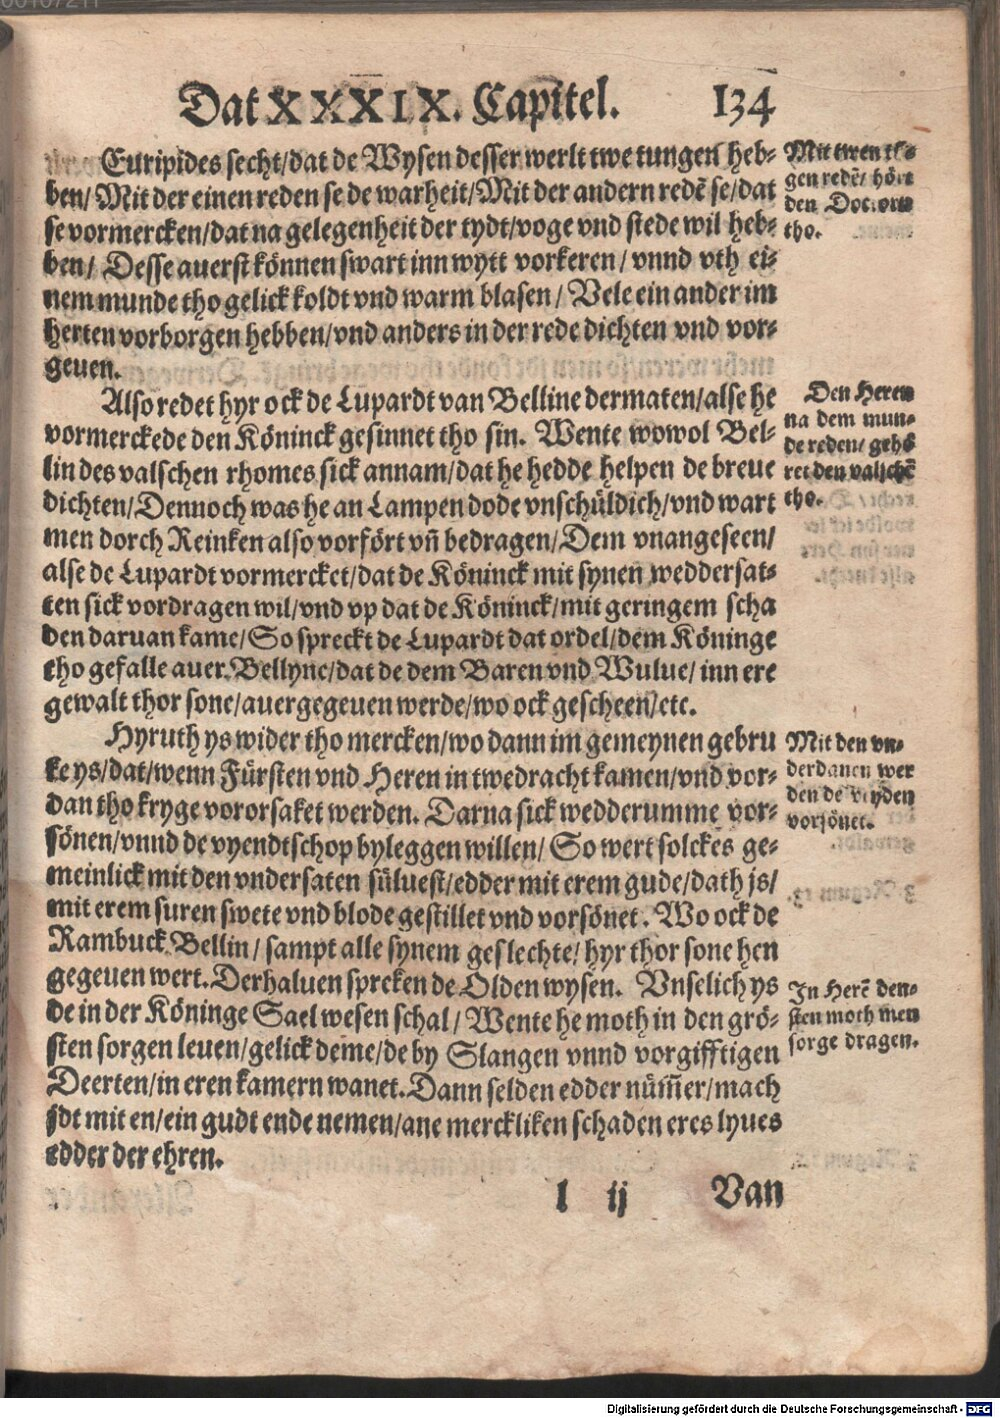 Dat XXXIX. Capitel. 134
Euripides secht/dat de Wysen desser werlt twe tungen heb-
ben/Mit der einen reden se de warheit/Mit der andern redē se/dat
se vormercken/dat na gelegenheit der tydt/voge vnd stede wil heb-
ben/ Desse auerst können swart inn wytt vorkeren/vnnd vth ei-
nem munde tho gelick koldt vnd warm blasen/ Vele ein ander im
herten vorborgen hebben/vnd anders in der rede dichten vnd vor-
geuen.
Mit twen
gen redē/ hört
den
tho.
Also redet hyr ock de Lupardt van Belline dermaten/alse he
vormerckede den Köninck gesinnet tho sin. Wente wowol Bel-
lin des valschen rhomes sick annam/dat he hedde helpen de breue
dichten/Dennoch was he an Lampen dode vnschüldich/vnd wart
men dorch Reinken also vorfört vñ bedragen/Dem vnangeseen/
alse de Lupardt vormercket/dat de Köninck mit synen weddersat-
ten sick vordragen wil/vnd vp dat de Köninck/mit geringem scha
den daruan kame/So spreckt de Lupardt dat ordel/dem Köninge
tho gefalle auer Bellyne/dat de dem Baren vnd Wulue/inn ere
gewalt thor sone/auergegeuen werde/wo ock gescheen/etc.
Den Heren
na dem mun-
de reden/ gehö
ret den valschē
tho.
Hyruth ys wider tho mercken/wo dann im gemeynen gebru
ke ys/dat/wenn Fürsten vnd Heren in twedracht kamen/vnd vor-
dan tho kryge vororsaket werden. Darna sick wedderumme vor-
sönen/vnnd de vyendtschop byleggen willen/ So wert solckes ge-
meinlick mit den vndersaten süluest/edder mit erem gude/dath js/
mit erem suren swete vnd blode gestillet vnd vorsönet. Wo ock de
Rambuck Bellin/sampt alle synem geslechte/hyr thor sone hen
gegeuen wert. Derhaluen spreken de Olden wysen. Vnselich ys
de in der Köninge Sael wesen schal/ Wente he moth in den grö-
sten sorgen leuen/gelick deme/de by Slangen vnnd vorgifftigen
Deerten/in eren kamern wanet. Dann selden edder nüm̄er/mach
jdt mit en/ein gudt ende nemen/ane merckliken schaden eres lyues
edder der ehren.
Mit den vn-
derdanen wer
den de vyden
vorsönet.
In Herē den-
sten moth men
sorge dragen.
l ij Van
Digitalisierung gefördert durch die Deutsche Forschungsgemeinschaft - DFG